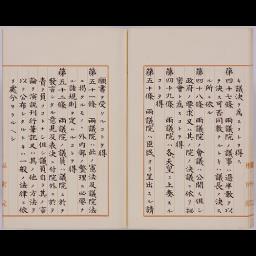 キ議決ヲ爲スコトヲ得ス
第四十七條 兩議院ノ議事ハ過半數ヲ以
テ決ス可否同數ナルトキハ議長ノ決ス
ル所ニ依ル
第四十八條 兩議院ノ會議ハ公開ス但シ
政府ノ要求又ハ其ノ院ノ決議ニ依リ祕
密會ト爲スコトヲ得
第四十九條 兩議院ハ各天皇ニ上奏スル
コトヲ得
第五十條 兩議院ハ臣民ヨリ呈出スル請
願書ヲ受クルコトヲ得
第五十一條 兩議院ハ此ノ憲法及議院法
ニ掲クルモノヽ外内部ノ整理ニ必要ナ
ル諸規則ヲ定ムルコトヲ得
第五十二條 兩議院ノ議員ハ議院ニ於テ
發言シタル意見及表決ニ付院外ニ於テ
責ヲ負フコトナシ但シ議員自ラ其ノ言
論ヲ演説刊行筆記又ハ其ノ他ノ方法ヲ
以テ公布シタルトキハ一般ノ法律ニ依
リ處分セラルヘシ